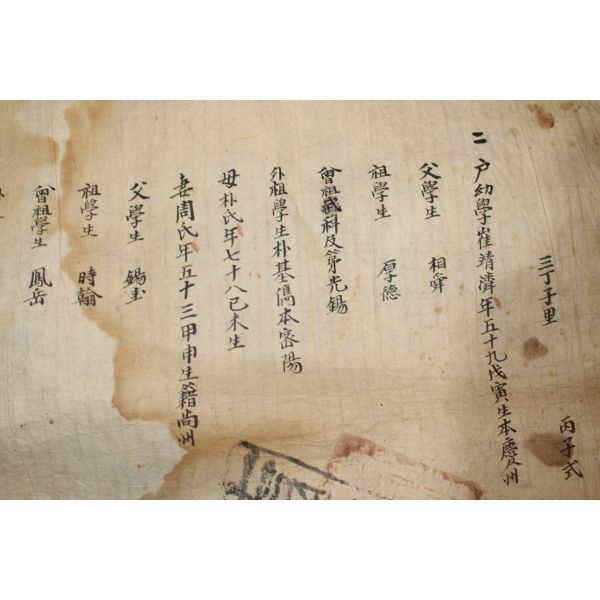 三丁子里 丙子式
二 户幼學崔靖濟年五十九戊寅生本慶州
父學生 相舜
祖學生 厚德
曾祖武科及第光錫
外祖學生朴基儁本密陽
母朴氏年七十八己未生
妻周氏年五十三甲申生籍尚州
父學生 錫圭
祖學生 時翰
曾祖學生 鳳岳